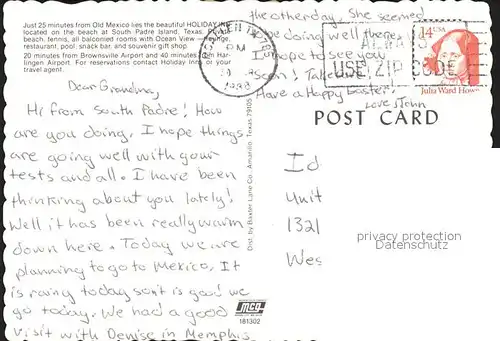 Just 25 minutes from Old Mexico lies the beautiful HOLIDAY
located on the beach at South Padre Island, Texas.
beach, tennis, all balconied rooms with Ocean View
restaurant, pool, snack bar, and souvenir gift shop.
20 minutes from Brownsville Airport and 40 minutes
lingen Airport. For reservations contact Holiday Inns or your
travel agent.
Dear Grandma,
Hi from South Padre! How
are you doing. I hope things
are going well with your
tests and all. I have been
thinking about you lately!
Well it has been really warm
down here. Today we are
planning to go to Mexico. It
is raing today so it is good we
go today. We had a good
visit with Denise in Memphis
the other day. She seemed
be doing well there.
I hope to see you
soon! Take care
Have a Happy Easter!
Love, John
PM
1988
USE ZIP CODE
14 USA
Julia Ward Howe
Dist. by Baxter Lane Co. Amarillo, Texas 79105
POST CARD
Id
Unit
1321
Wes
privacy protection
Datenschutz
mcg
181302